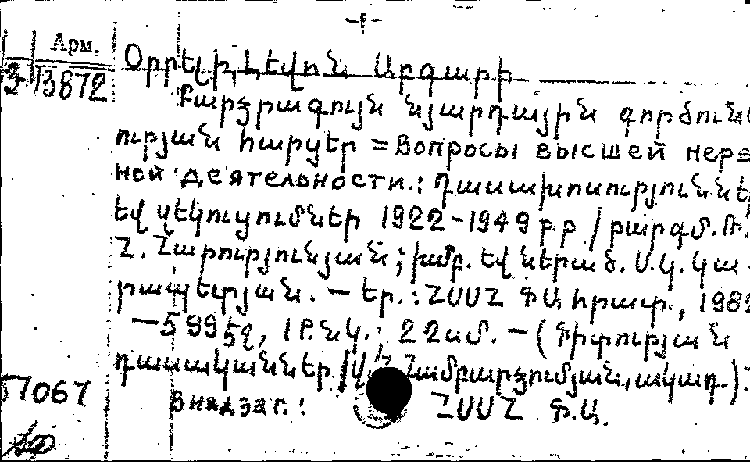 Арм.
Օրբելի, Լևոն Աբգարի
3 13872
Բարձրագույն նյարդային գործուն
ության հարցեր = Вопросы высшей нерв
ной деятельности.: Դասախոսություննե
եվ զեկուցումներ 1922-1949 թթ / թարգմ. Ռ.
Հ. Հարությունյան; խմբ. եվ ներած. Ս. Կ. Կա-
րապետյան. – Եր.: ՀՍՍՀ ԳԱ հրատ., 198
– 599 էջ, 1 թ. նկ.; 22 սմ. – (Գիտության
դասականներ / Համբարձումյան, ակադ.).
57067
В надзаг.: ՀՍՍՀ ԳԱ.